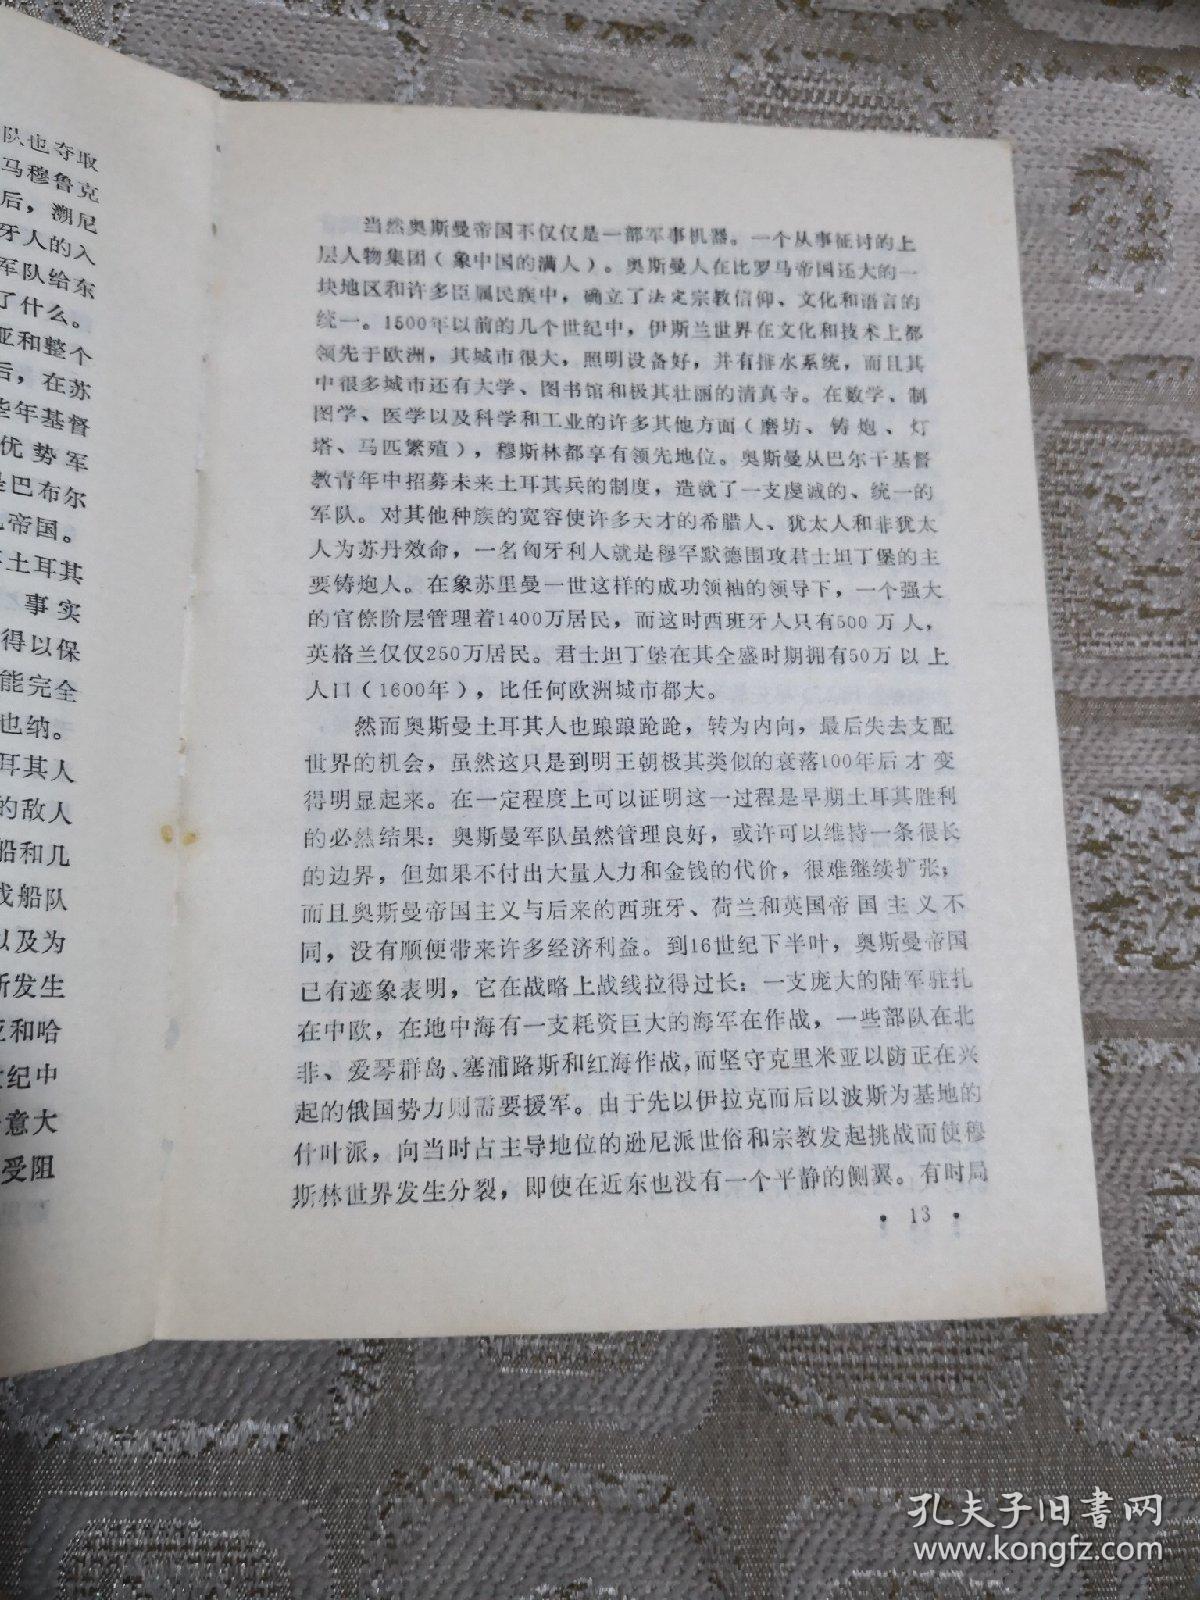 队也夺取
马穆鲁克
后，溯尼
牙人的入
军队给东
了什么。
亚和整个
后，在苏
些年基督
优势军
是巴布尔
帝国。
土耳其
事实
得以保
能完全
也纳。
耳其人
的敌人
船和几
战船队
以及为
所发生
亚和哈
世纪中
意大
受阻
当然奥斯曼帝国不仅仅是一部军事机器。一个从事征讨的上
层人物集团（象中国的满人）。奥斯曼人在比罗马帝国还大的一
块地区和许多臣属民族中，确立了法定宗教信仰、文化和语言的
统一。1500年以前的几个世纪中，伊斯兰世界在文化和技术上都
领先于欧洲，其城市很大，照明设备好，并有排水系统，而且其
中很多城市还有大学、图书馆和极其壮丽的清真寺。在数学、制
图学、医学以及科学和工业的许多其他方面（磨坊、铸炮、灯
塔、马匹繁殖），穆斯林都享有领先地位。奥斯曼从巴尔干基督
教青年中招募未来土耳其兵的制度，造就了一支虔诚的、统一的
军队。对其他种族的宽容使许多天才的希腊人、犹太人和非犹太
人为苏丹效命，一名匈牙利人就是穆罕默德围攻君士坦丁堡的主
要铸炮人。在象苏里曼一世这样的成功领袖的领导下，一个强大
的官僚阶层管理着1400万居民，而这时西班牙人只有500万人，
英格兰仅仅250万居民。君士坦丁堡在其全盛时期拥有50万以上
人口（1600年），比任何欧洲城市都大。
然而奥斯曼土耳其人也踉踉跄跄，转为内向，最后失去支配
世界的机会，虽然这只是到明王朝极其类似的衰落100年后才变
得明显起来。在一定程度上可以证明这一过程是早期土耳其胜利
的必然结果：奥斯曼军队虽然管理良好，或许可以维持一条很长
的边界，但如果不付出大量人力和金钱的代价，很难继续扩张；
而且奥斯曼帝国主义与后来的西班牙、荷兰和英国帝国主义不
同，没有顺便带来许多经济利益。到16世纪下半叶，奥斯曼帝国
已有迹象表明，它在战略上战线拉得过长：一支庞大的陆军驻扎
在中欧，在地中海有一支耗资巨大的海军在作战，一些部队在北
非、爱琴群岛、塞浦路斯和红海作战，而坚守克里米亚以防正在兴
起的俄国势力则需要援军。由于先以伊拉克而后以波斯为基地的
什叶派，向当时占主导地位的逊尼派世俗和宗教发起挑战而使穆
斯林世界发生分裂，即使在近东也没有一个平静的侧翼。有时局
• 13 •
孔夫子旧书网
www.kongfz.com